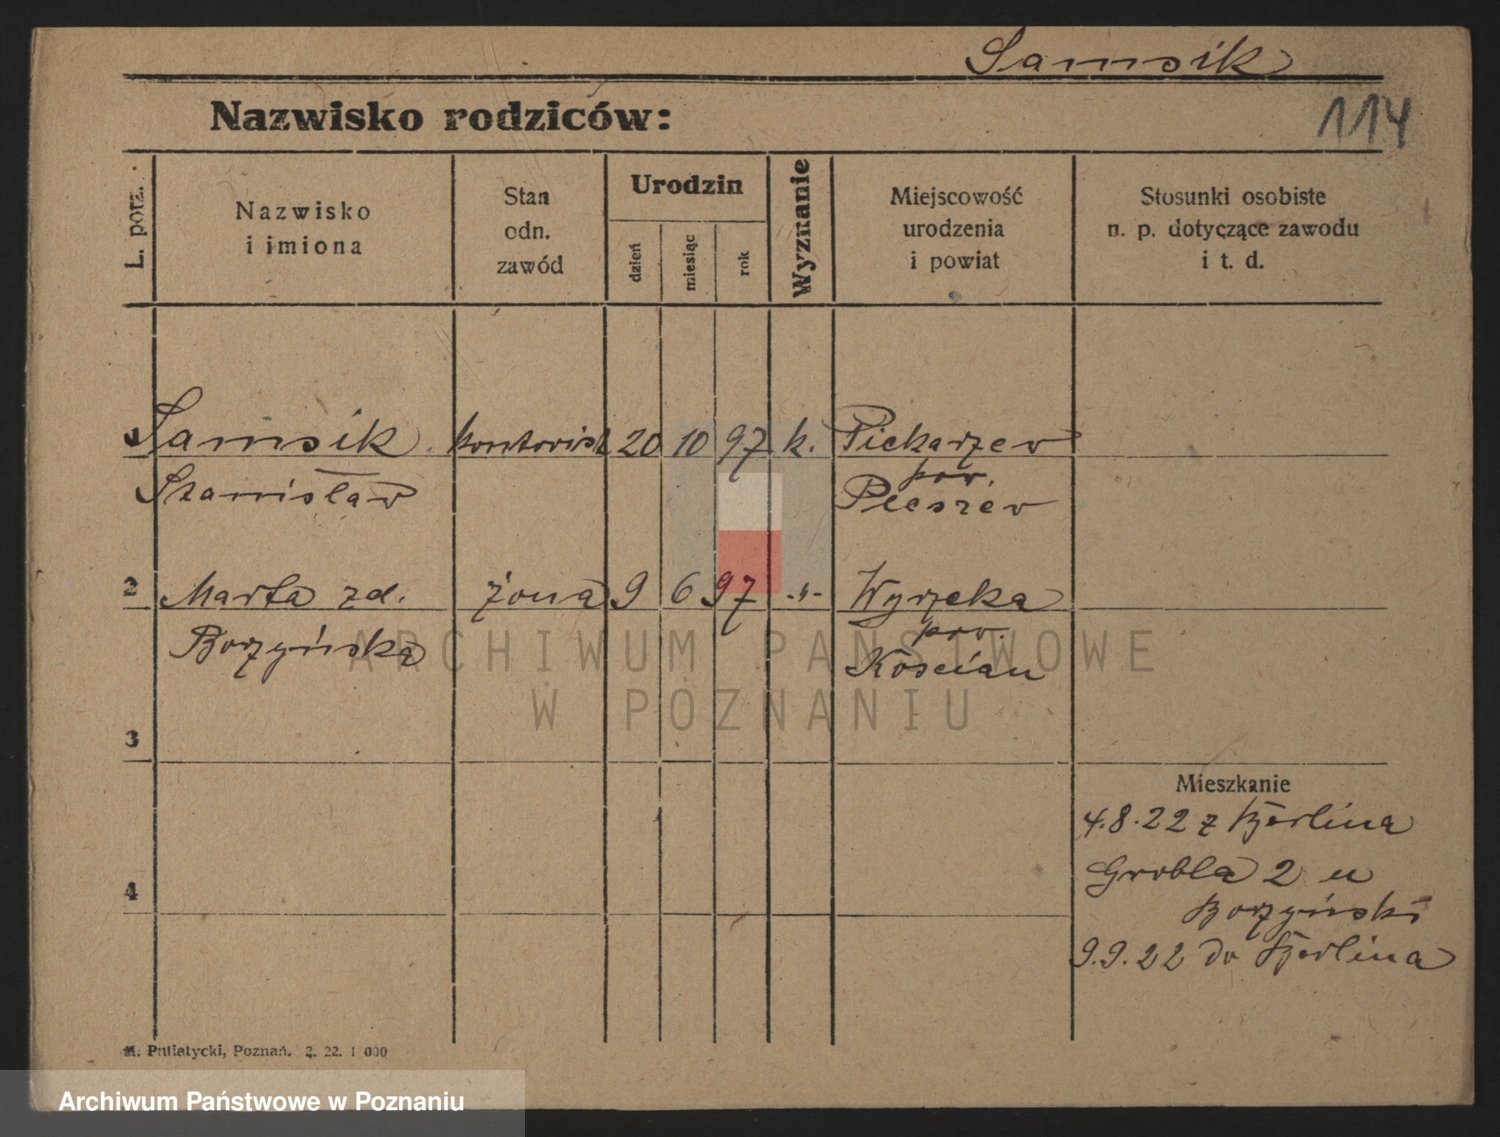 Samsik
Nazwisko rodziców:
114
L. porz.
Nazwisko
i imiona
Stan
odn.
zawód
Urodzin
dzień
miesiąc
rok
Wyznanie
Miejscowość
urodzenia
i powiat
Stosunki osobiste
n. p. dotyczące zawodu
i t. d.
Samsik kontorist 20 10 97 k. Piekarzew
pow.
Stanisław Pleszew
2 Marta zd. żona 9 6 97 -"- Wyrzeka
pow.
Borzyńska Kościan
3
Mieszkanie
4.8.22 z Berlina
Grobla 2 u
4
Borzyński
9.9.22 do Berlina
M. Putiatycki, Poznań. 2. 22. 1 000
ARCHIWUM PAŃSTWOWE
W POZNANIU
Archiwum Państwowe w Poznaniu